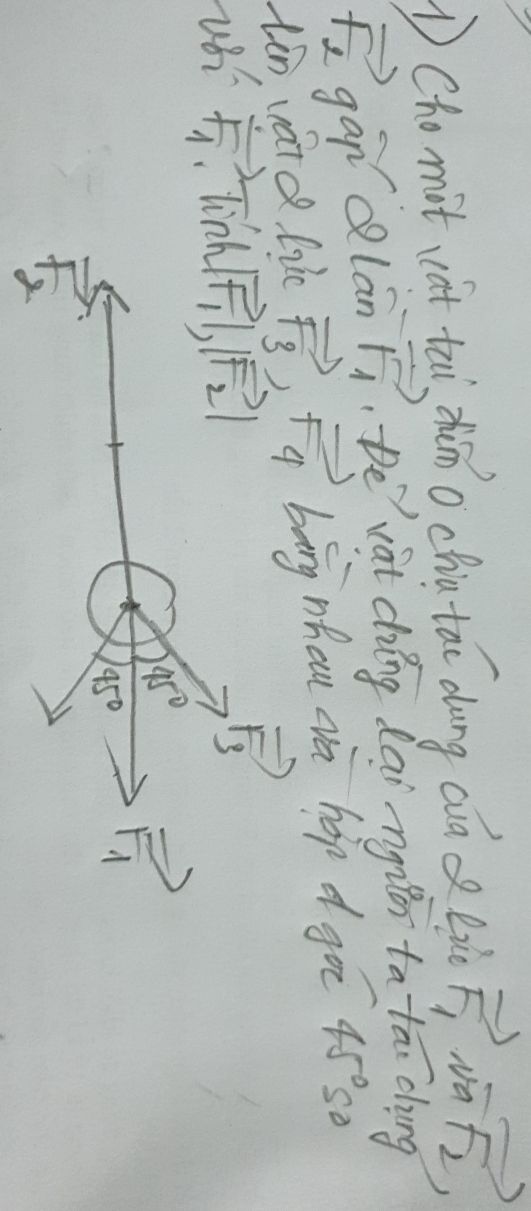 1) Cho một vật tại điểm O chịu tác dụng của 2 lực F₁ và F₂,
F₂ gấp 2 lần F₁. Để vật dừng lại người ta tác dụng
lên vật 2 lực F₃, F₄ bằng nhau và hợp d góc 45° so
với F₁. Tính |F₁|, |F₂|
F₃
45°
45°
F₁
F₂